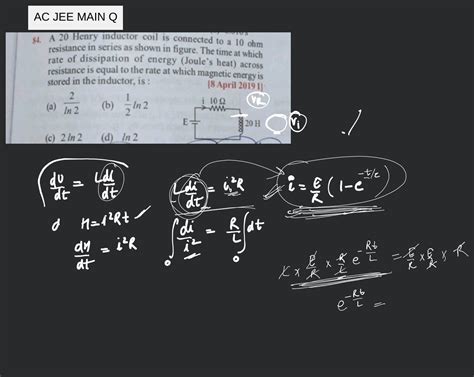 AC JEE MAIN Q
84. A 20 Henry inductor coil is connected to a 10 ohm
resistance in series as shown in figure. The time at which
rate of dissipation of energy (Joule's heat) across
resistance is equal to the rate at which magnetic energy is
stored in the inductor, is :
[8 April 2019 I]
(a) 2/ln 2 (b) 1/2 ln 2
i 10 Ω
VR
E
20 H
Vi
(c) 2 ln 2 (d) ln 2
dU/dt = L di/dt
L di/dt = i²R
i = E/R (1-e^-t/τ)
H = i²Rt
∫₀ di/i² = R/L ∫₀ dt
dH/dt = i²R
L × E/R × R/L e^-Rt/L = E/R × E/R × R
e^-Rt/L =